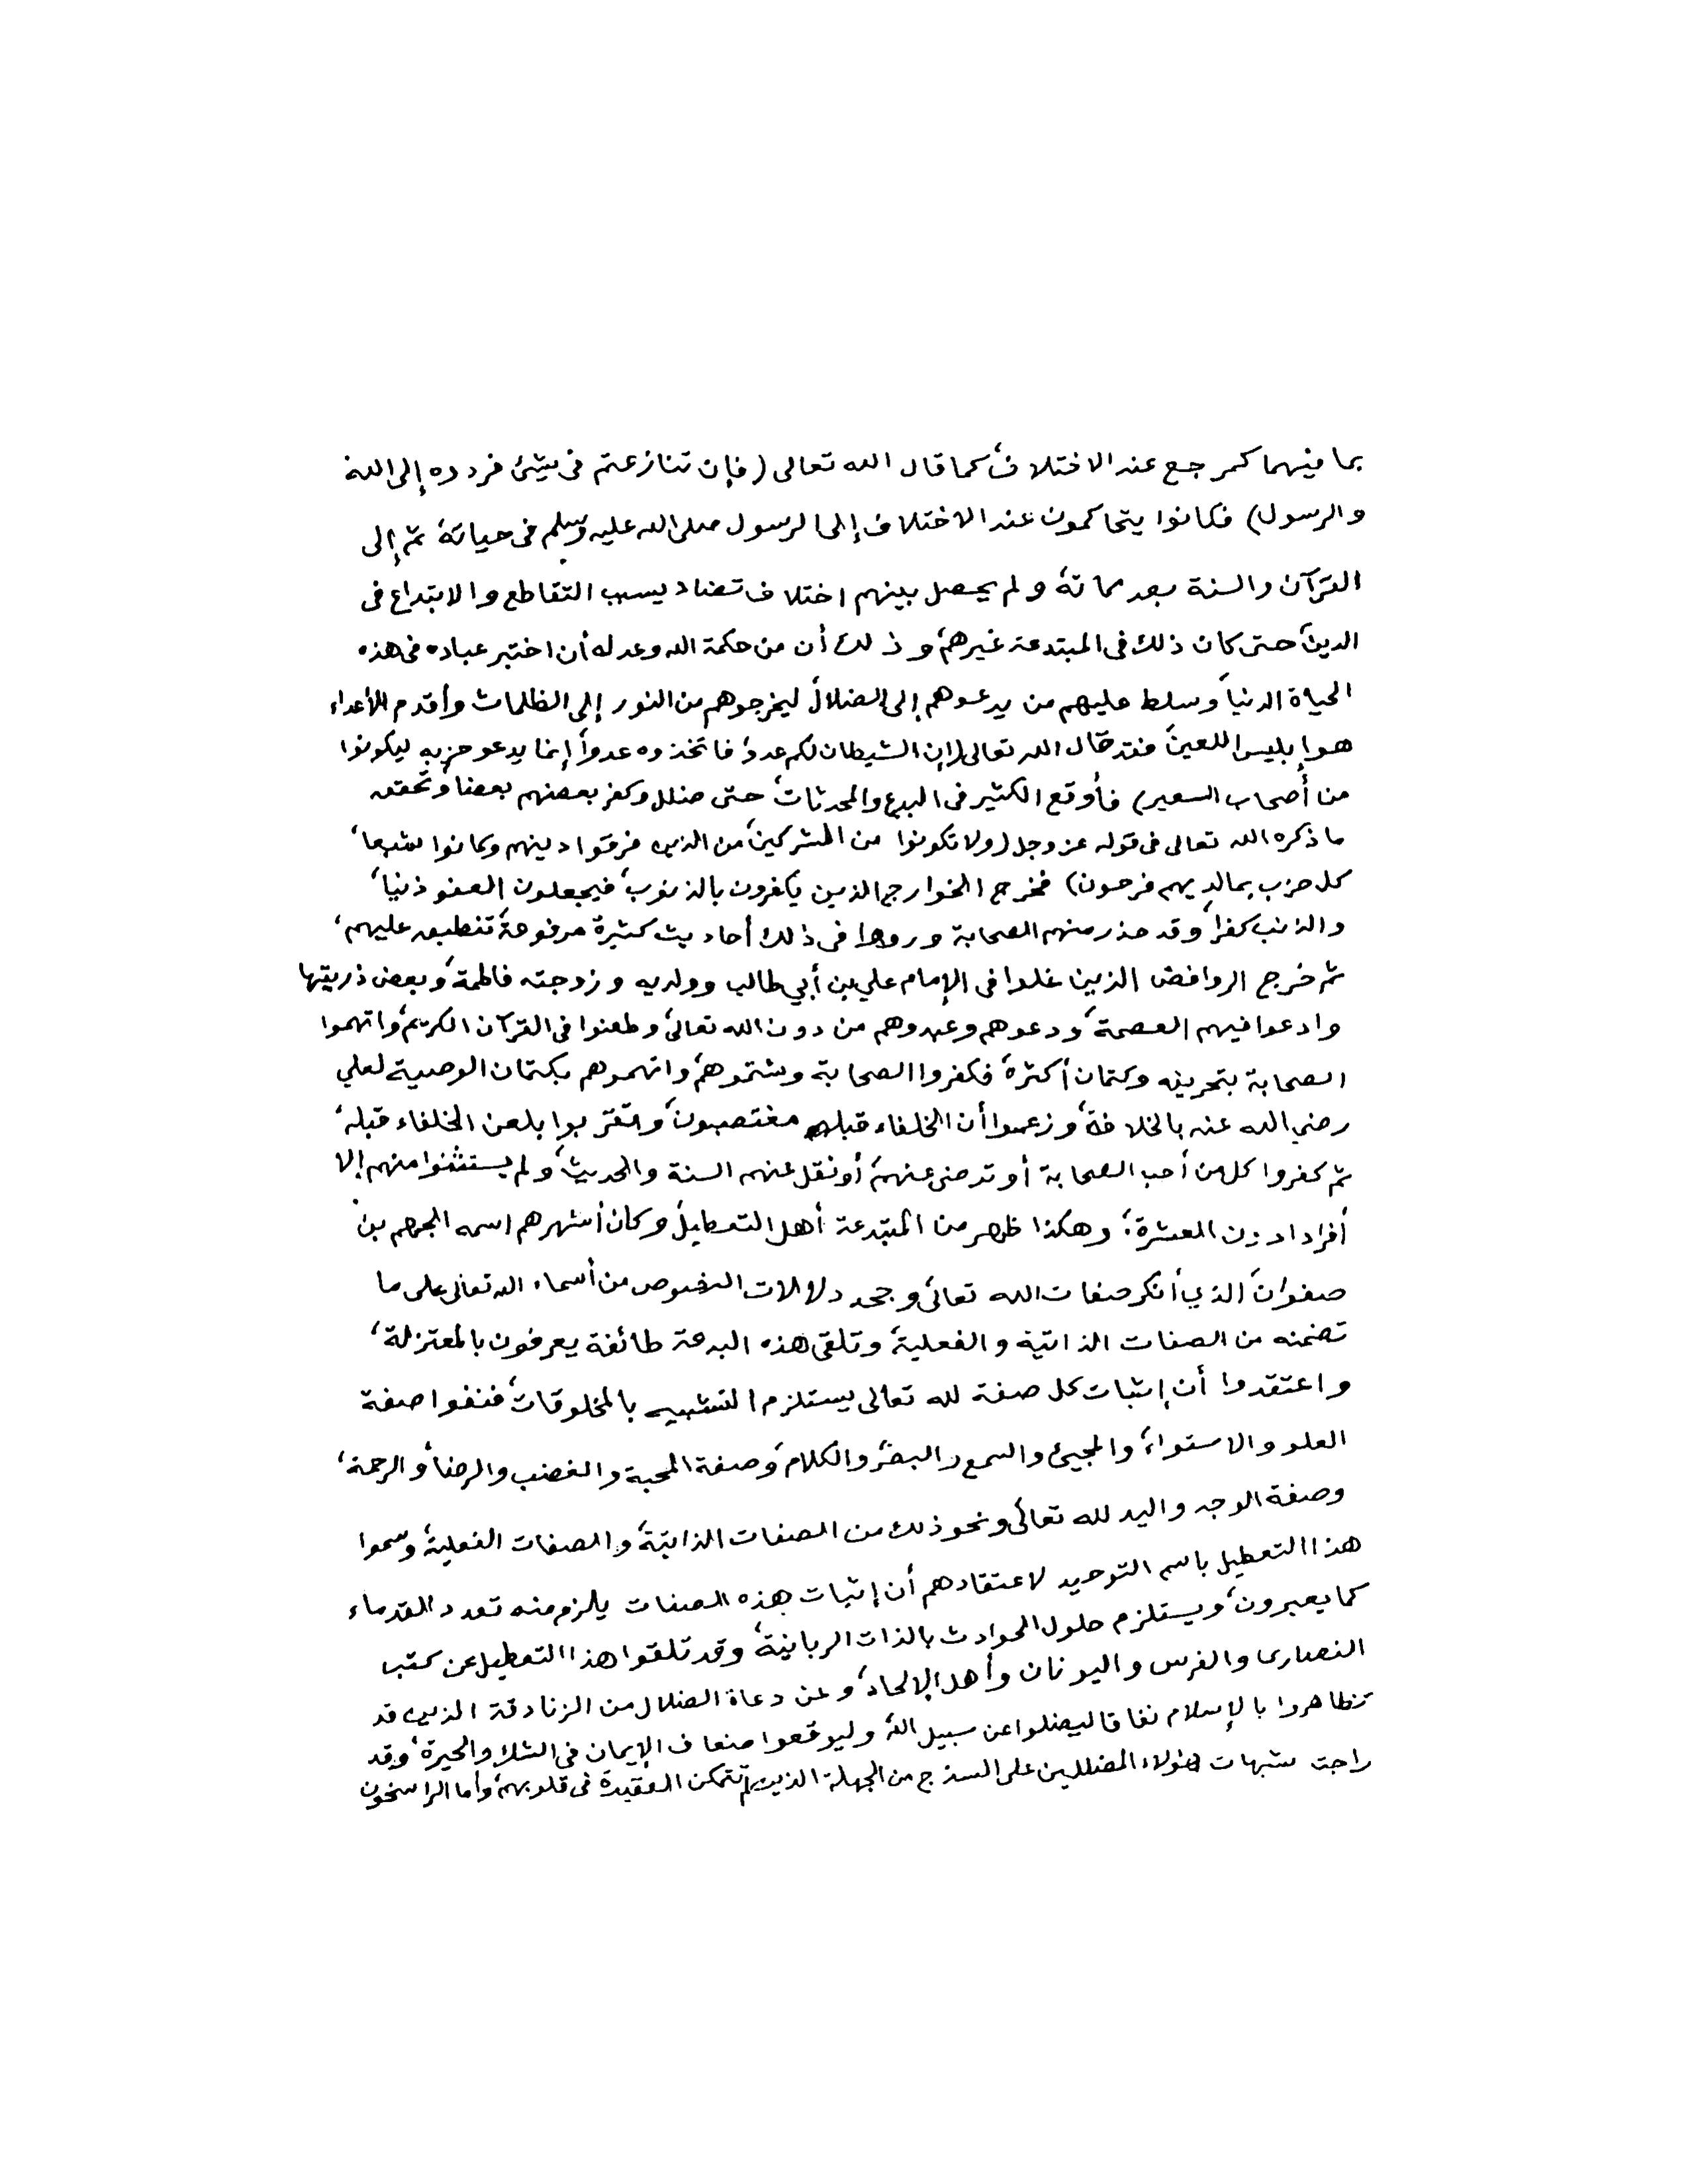 بما فيهما كمرجع عند الاختلاف، كما قال الله تعالى (فإن تنازعتم في شيئ فردوه إلى الله
والرسول) فكانوا يتحاكمون عند الاختلاف إلى الرسول صلى الله عليه وسلم في حياته، ثم إلى
القرآن والسنة بعد مماته، ولم يحصل بينهم اختلاف تضاد يسبب التقاطع والابتداع في
الدين، حتى كان ذلك في المبتدعة غيرهم، وذلك أن من حكمة الله وعدله أن اختبر عباده في هذه
الحياة الدنيا، وسلط عليهم من يدعوهم إلى الضلال، ليخرجوهم من النور إلى الظلمات وأقدم الأعداء
هو إبليس اللعين، فقد قال الله تعالى (إن الشيطان لكم عدو، فاتخذوه عدوا، إنما يدعو حزبه ليكونوا
من أصحاب السعير) فأوقع الكثير في البدع والمحدثات، حتى ضلل وكفر بعضهم بعضا، وتحقق
ما ذكره الله تعالى في قوله عز وجل (ولا تكونوا من المشركين، من الذين فرقوا دينهم وكانوا شيعا،
كل حزب بما لديهم فرحون) فخرج الخوارج الذين يكفرون بالذنوب، فيجعلون العفو ذنبا،
والذنب كفرا، وقد حذر منهم الصحابة ورووا في ذلك أحاديث كثيرة مرفوعة، تنطبق عليهم،
ثم خرج الروافض الذين غلوا في الإمام علي بن أبي طالب وولديه وزوجته فاطمة، وبعض ذريتها
وادعوا فيهم العصمة، ودعوهم وعبدوهم من دون الله تعالى، وطعنوا في القرآن الكريم، واتهموا
الصحابة بتحريفه وكتمان أكثره، فكفروا الصحابة وشتموهم، واتهموهم بكتمان الوصية لعلي
رضي الله عنه بالخلافة، وزعموا أن الخلفاء قبله مغتصبون، وتقربوا بلعن الخلفاء قبله،
ثم كفروا كل من أحب الصحابة أو ترضى عنهم، أو نقل عنهم السنة والحديث، ولم يستثنوا منهم إلا
أفرادا دون العشرة؛ وهكذا ظهر من المبتدعة أهل التعطيل، وكان أشهرهم اسمه الجهم بن
صفوان، الذي أنكر صفات الله تعالى، وجحد دلالات النصوص من أسماء الله تعالى على ما
تضمنه من الصفات الذاتية والفعلية، وتلقى هذه البدعة طائفة يعرفون بالمعتزلة،
واعتقدوا أن إثبات كل صفة لله تعالى يستلزم التشبيه بالمخلوقات، فنفوا صفة
العلو والاستواء، والمجيئ والسمع والبصر، والكلام، وصفة المحبة والغضب والرضا، والرحمة،
وصفة الوجه واليد لله تعالى، ونحو ذلك من الصفات الذاتية، والصفات الفعلية، وسموا
هذا التعطيل باسم التوحيد لاعتقادهم أن إثبات هذه الصفات يلزم منه تعدد القدماء
كما يعبرون، ويستلزم حلول الحوادث بالذات الربانية، وقد تلقوا هذا التعطيل عن كتب
النصارى والفرس واليونان وأهل الإلحاد، وعن دعاة الضلال من الزنادقة الذين قد
تظاهروا بالإسلام نفاقا ليضلوا عن سبيل الله، وليوقعوا ضعاف الإيمان في الشك والحيرة، وقد
راجت شبهات هؤلاء المضللين على السذج من الجهلة الذين لم تتمكن العقيدة في قلوبهم، وأما الراسخون